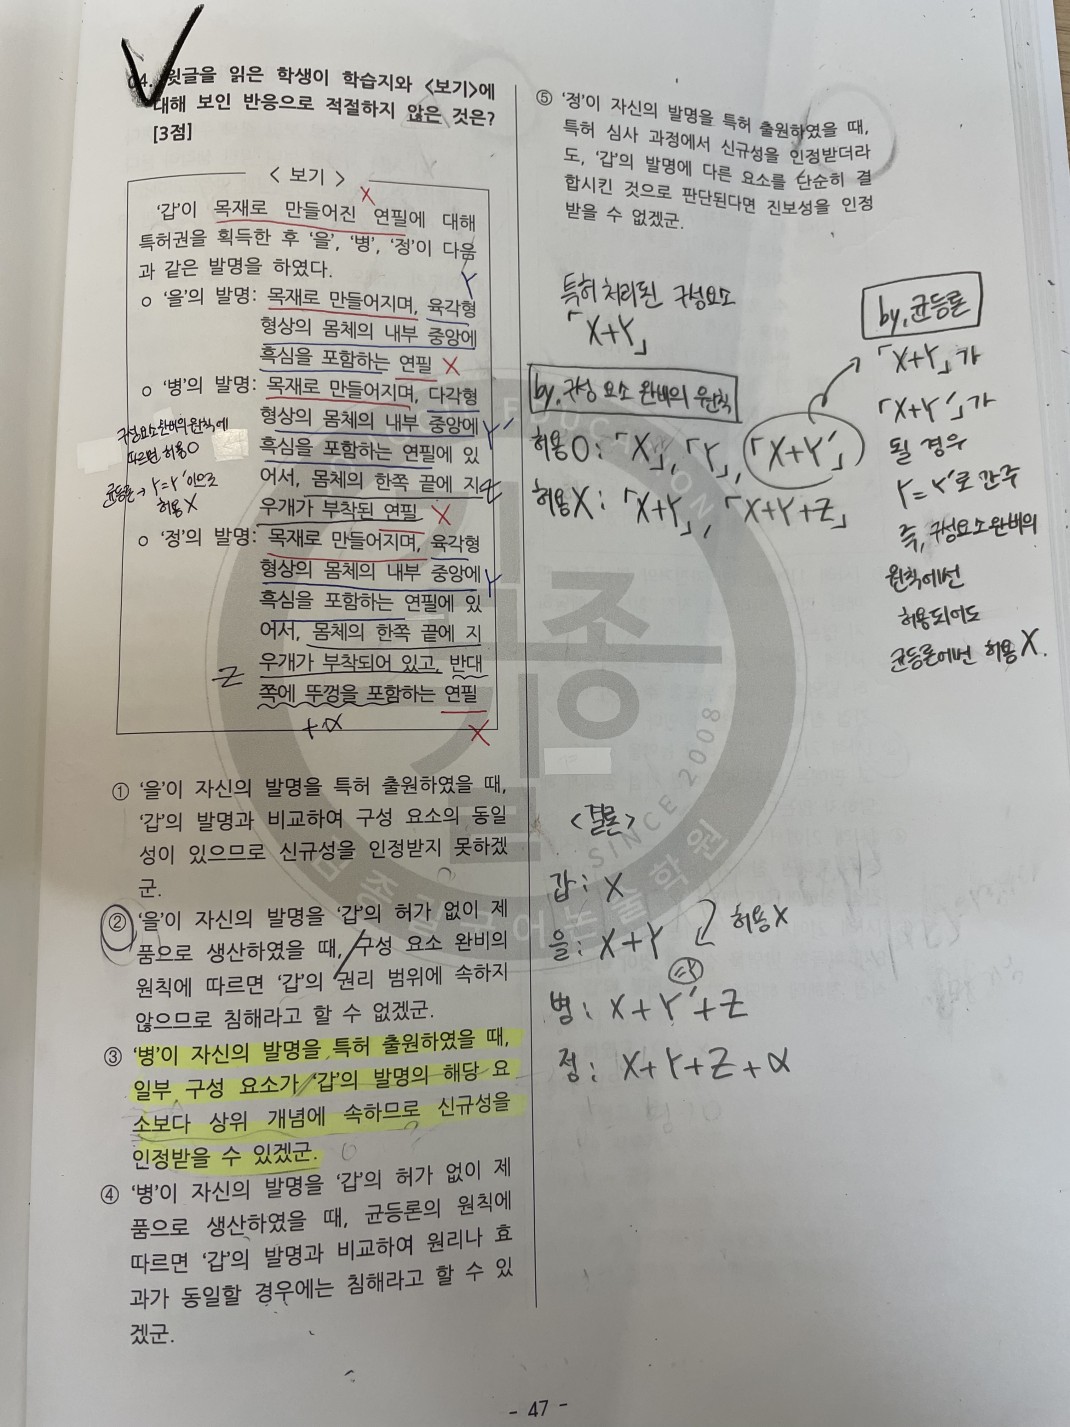 04. 윗글을 읽은 학생이 학습지와 <보기>에
대해 보인 반응으로 적절하지 않은 것은?
[3점]
< 보기 >
X
'갑'이 목재로 만들어진 연필에 대해
특허권을 획득한 후 '을', '병', '정'이 다음
과 같은 발명을 하였다.
Y
○ '을'의 발명: 목재로 만들어지며, 육각형
형상의 몸체의 내부 중앙에
흑심을 포함하는 연필 X
○ '병'의 발명: 목재로 만들어지며, 다각형
형상의 몸체의 내부 중앙에 Y'
흑심을 포함하는 연필에 있
어서, 몸체의 한쪽 끝에 지 Z
우개가 부착된 연필 X
구성요소완비의 원칙에
따르면 허용O
균등론→ Y=Y'이므로
허용X
○ '정'의 발명: 목재로 만들어지며, 육각형
형상의 몸체의 내부 중앙에 Y
흑심을 포함하는 연필에 있
어서, 몸체의 한쪽 끝에 지
Z 우개가 부착되어 있고, 반대
쪽에 뚜껑을 포함하는 연필
+α X
① '을'이 자신의 발명을 특허 출원하였을 때,
'갑'의 발명과 비교하여 구성 요소의 동일
성이 있으므로 신규성을 인정받지 못하겠
군.
② '을'이 자신의 발명을 '갑'의 허가 없이 제
품으로 생산하였을 때, 구성 요소 완비의
원칙에 따르면 '갑'의 권리 범위에 속하지
않으므로 침해라고 할 수 없겠군.
③ '병'이 자신의 발명을 특허 출원하였을 때,
일부 구성 요소가 '갑'의 발명의 해당 요
소보다 상위 개념에 속하므로 신규성을
인정받을 수 있겠군.
④ '병'이 자신의 발명을 '갑'의 허가 없이 제
품으로 생산하였을 때, 균등론의 원칙에
따르면 '갑'의 발명과 비교하여 원리나 효
과가 동일할 경우에는 침해라고 할 수 있
겠군.
⑤ '정'이 자신의 발명을 특허 출원하였을 때,
특허 심사 과정에서 신규성을 인정받더라
도, '갑'의 발명에 다른 요소를 단순히 결
합시킨 것으로 판단된다면 진보성을 인정
받을 수 없겠군.
특허 처리된 구성요소
「X+Y」
by, 구성 요소 완비의 원칙
허용O: 「X」, 「Y」, 「X+Y'」
허용X: 「X+Y」, 「X+Y+Z」
by, 균등론
「X+Y」가
「X+Y'」가
될 경우
Y=Y'로 간주
즉, 구성요소완비의
원칙에선
허용되어도
균등론에선 허용X.
<결론>
갑: X
을: X+Y 허용X
병: X+Y'+Z
정: X+Y+Z+α
EDUCATION
SINCE 2008
- 47 -